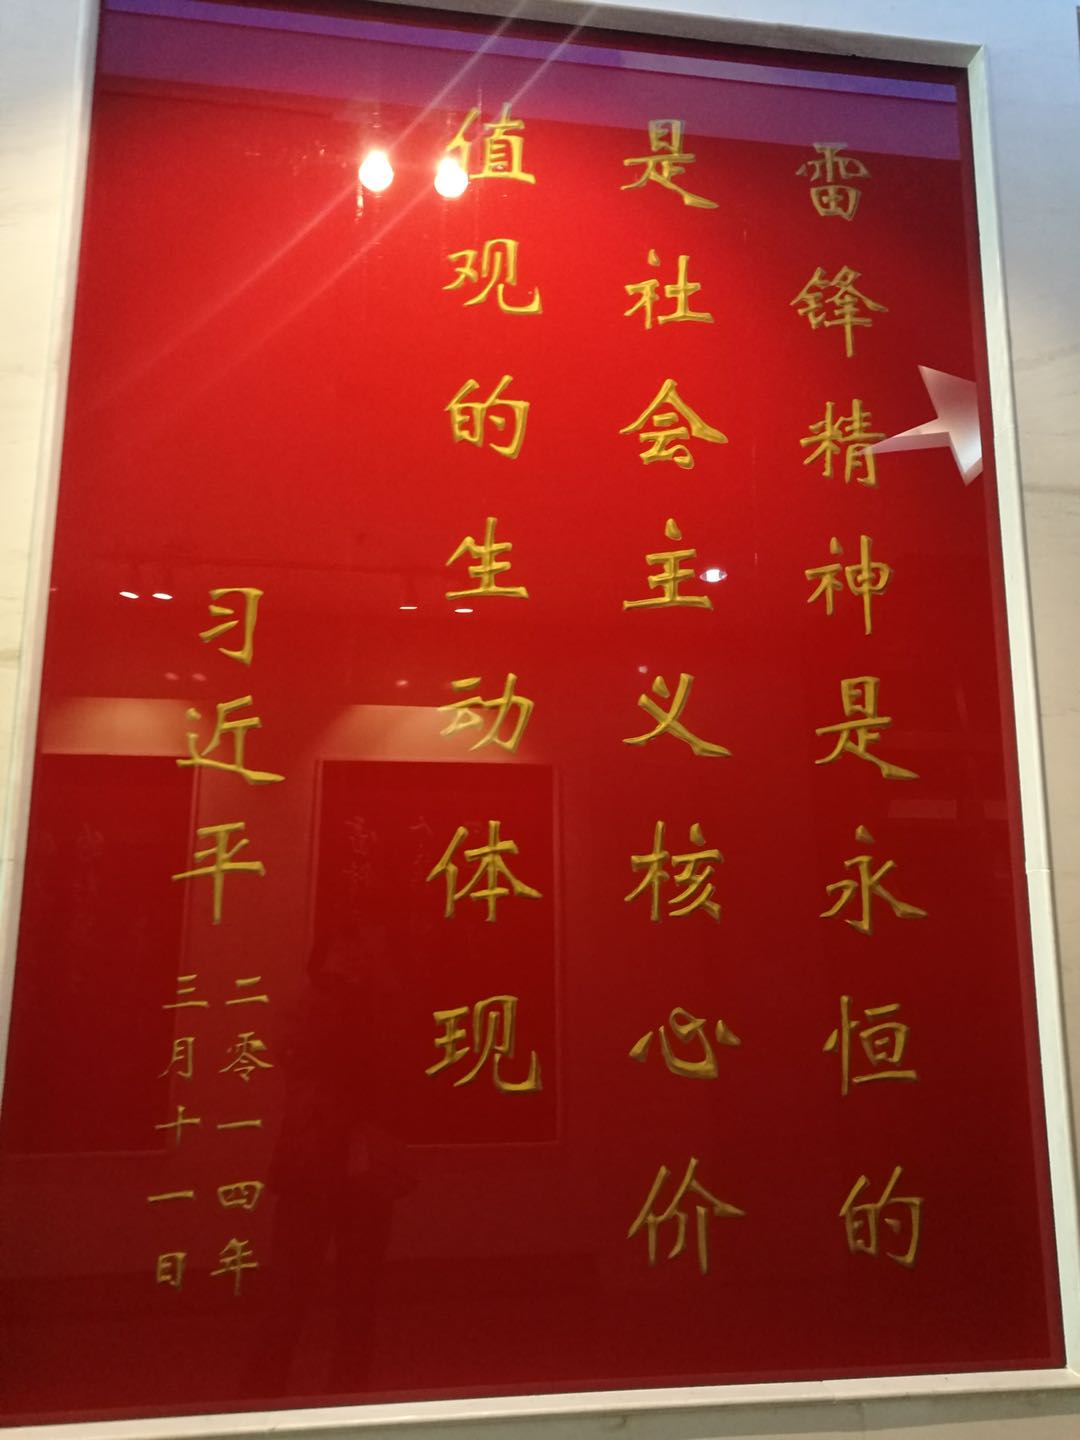 雷锋精神是永恒的
是社会主义核心价
值观的生动体现
习近平
二零一四年
三月十一日